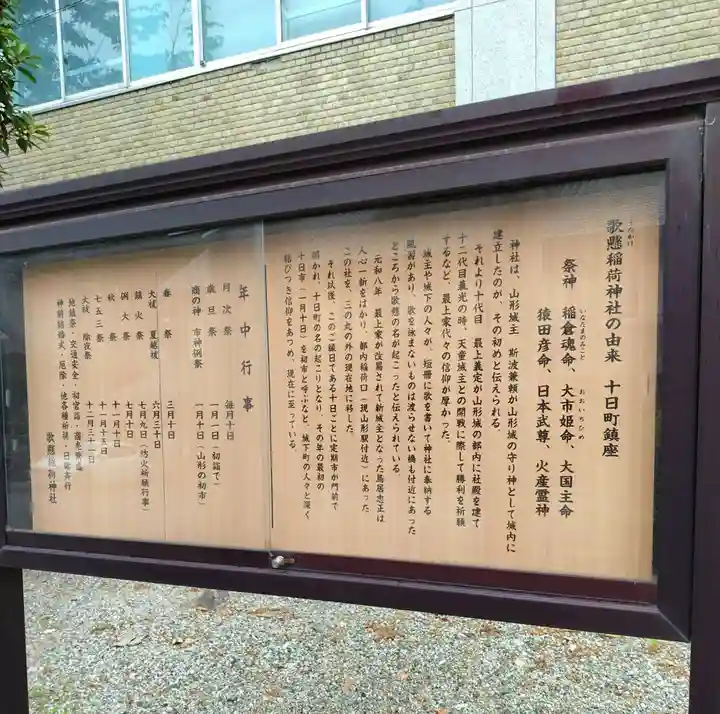 歌懸稲荷神社の由来 十日町鎮座
うたかけ
祭神 稲倉魂命、大市姫命、大国主命
いなたまのみこと おおいちひめ
猿田彦命、日本武尊、火産霊神
神社は、山形城主 斯波兼頼が山形城の守り神として城内に
建立したのが、その初めと伝えられる。
それより十代目 最上義定が山形城の郭内に社殿を建て
十二代目義光の時、天童城主との開戦に際して勝利を祈願
するなど、最上家代々の信仰が厚かった。
城主や城下の人々が、短冊に歌を書いて神社に奉納する
風習があり、歌を詠まないものは渡らせない橋も付近にあった
ところから歌懸の名が起こったと伝えられている。
元和八年 最上家が改易されて新城主となった鳥居忠正は
人心一新をはかり、郭内稲荷口(現山形駅付近)にあった
この社を、三の丸の外の現在地に移した。
それ以後、このご縁日である十日ごとに定期市が門前で
開かれ、十日町の名の起こりとなり、その年の最初の
十日市(一月十日)を初市と呼ぶなど、城下町の人々と深く
結びつき信仰をあつめ、現在に至っている。
年中行事
月次祭 毎月十日
歳旦祭 一月一日(初詣で)
商の神 市神例祭 一月十日(山形の初市)
春祭 三月十日
大祓 夏越祓 六月三十日
鎮火祭 七月九日(防火祈願行事)
例大祭 七月十日
秋祭 十一月十日
七五三祭 十一月十五日
大祓 除夜祭 十二月三十一日
地鎮祭・交通安全・初宮詣・商売繁盛
神前結婚式・厄除・他各種祈祷・日 斎行
歌懸稲荷神社